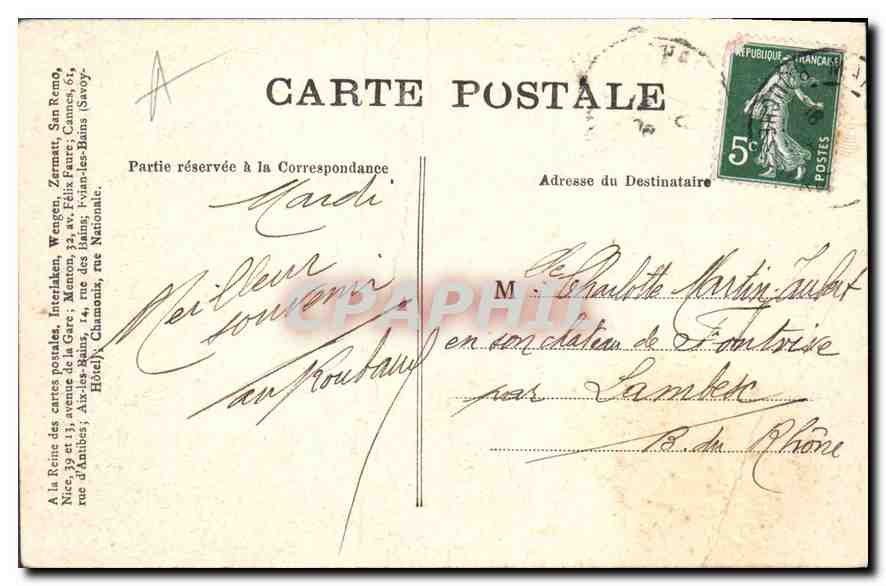 CARTE POSTALE
Partie réservée à la Correspondance
Adresse du Destinataire
RÉPUBLIQUE FRANÇAISE
5c
POSTES
Mardi
Meilleur
souvenir
M de Charlotte Martin Jaubert
en son château de Fontvise
par Lambesc
B. du Rhône
A la Reine des cartes postales, Interlaken, Wengen, Zermatt, San Remo,
Nice, 39 et 13, avenue de la Gare; Menton, 32, av. Félix Faure; Cannes, 61,
rue d'Antibes; Aix-les-Bains, 14, rue des Bains; Evian-les-Bains (Savoy-
Hôtel); Chamonix, rue Nationale.
CPAPHIL